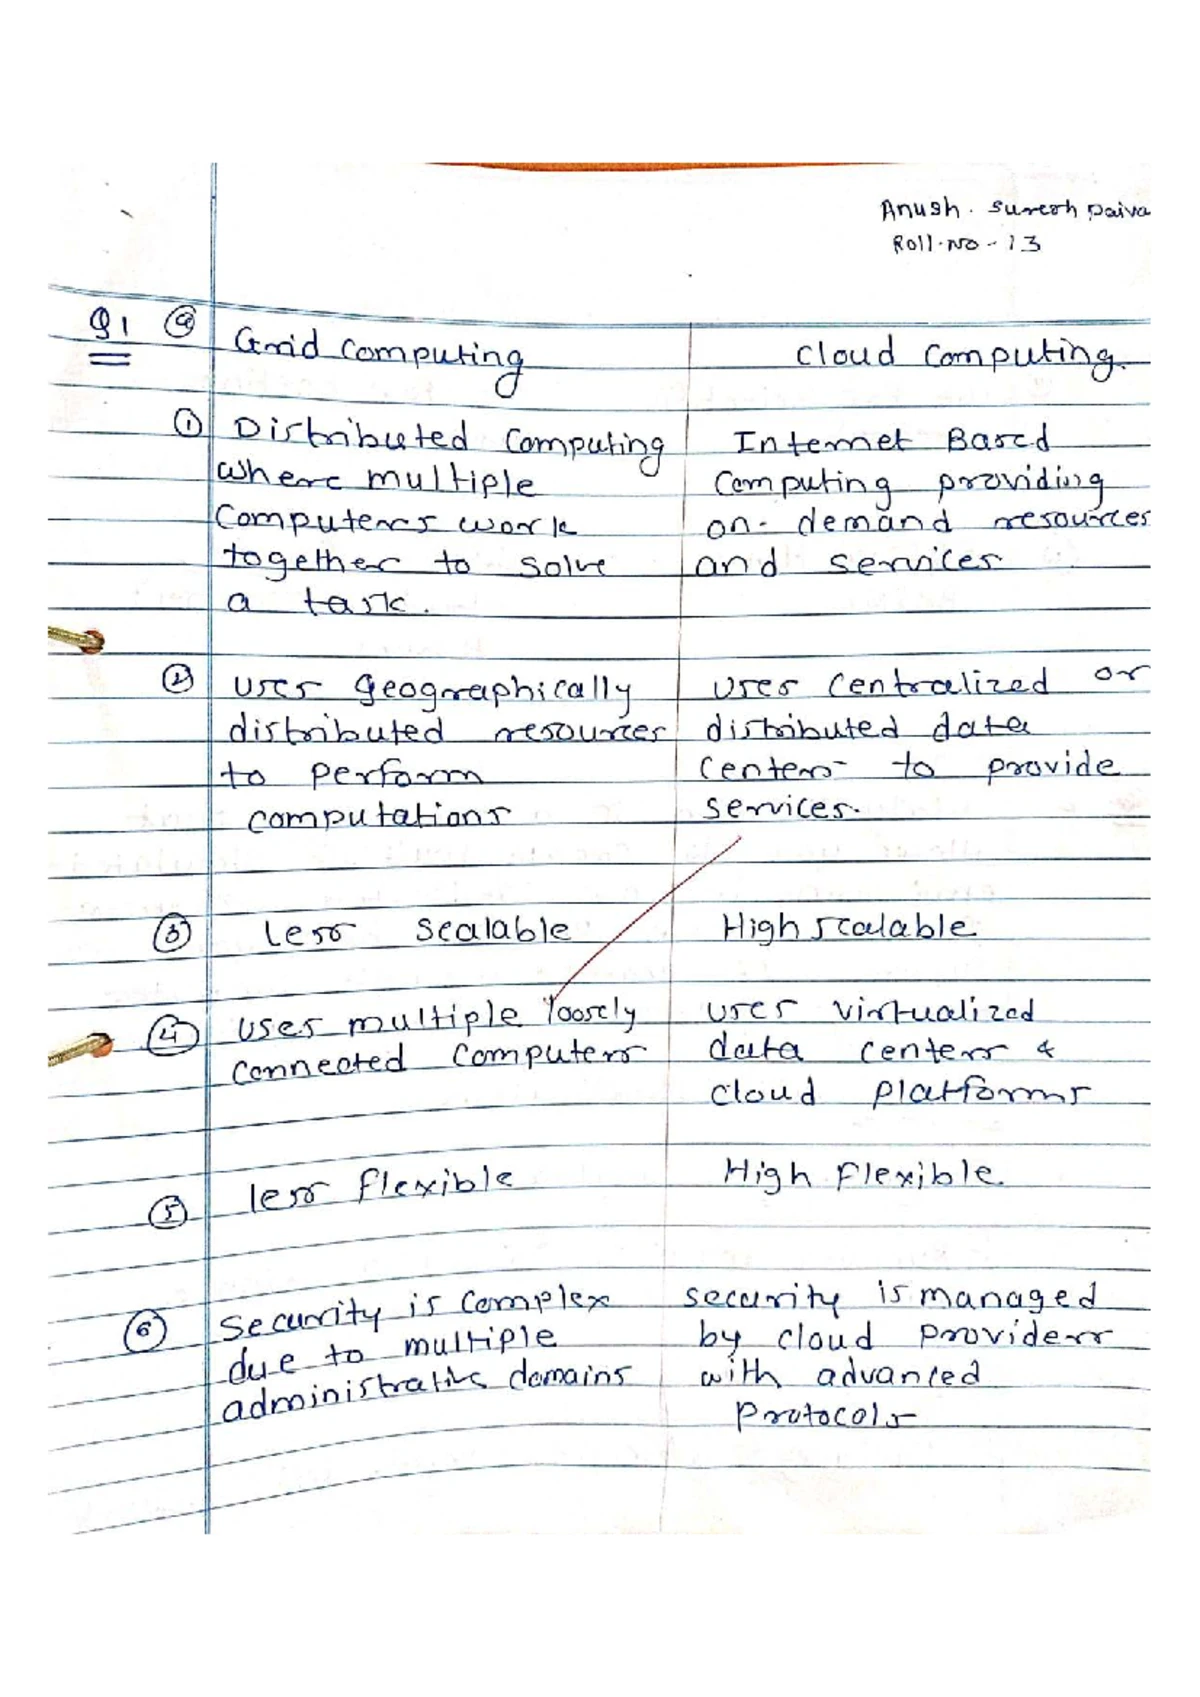 Anush. Suresh Paiva
Roll.No - 13
Q1 (a) Grid Computing
Cloud Computing.
(1) Distributed Computing
where multiple
Computers work
together to solve
a task.
Internet Based
Computing providing
on-demand resources
and services.
(2) uses geographically
distributed resources
to perform
computations
uses centralized or
distributed data
Centers to provide
services.
(3) less scalable
High scalable.
(4) uses multiple loosely
connected computers
uses virtualized
data centers &
cloud platforms
(5) less flexible
High Flexible.
(6) Security is complex
due to multiple
administrative domains
security is managed
by cloud providers
with advanced
Protocols